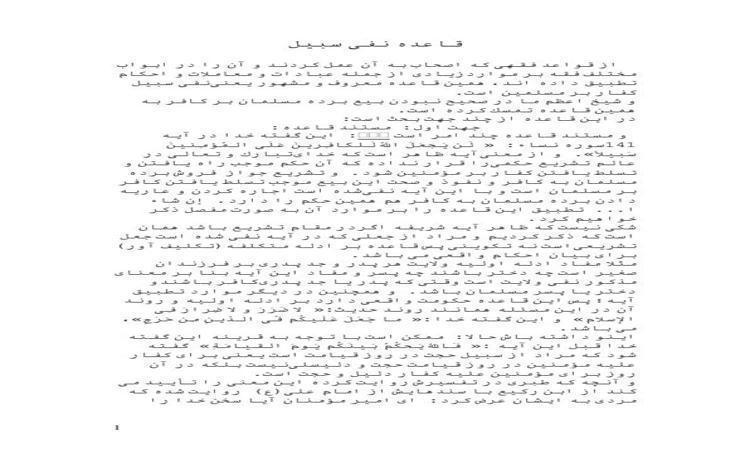 قاعده نفی سبیل
از قواعد فقهی که اصحاب به آن عمل کردند و آن را در ابواب
مختلف فقه بر موارد زیادی از جمله عبادات و معاملات و احکام
تطبیق داده اند. همین قاعده معروف و مشهور یعنی نفی سبیل
کفار بر مسلمین است.
و شیخ اعظم ما در صحیح نبودن بیع برده مسلمان بر کافر به
همین قاعده تمسك کرده است.
در این قاعده از چند جهت بحث است:
جهت اول: مستند قاعده:
و مستند قاعده چند امر است: این گفته خدا در آیه
141سوره نساء: « لَن يَجعَلَ اللهُ لِلكافِرينَ عَلَى المُؤمِنينَ
سَبيلاً». و از معنی آیه ظاهر است که خدای تبارك و تعالی در
عالم تشریع حکمی را قرار نداده که آن حکم موجب راه یافتن و
تسلط یافتن کفار بر مؤمنین شود. و تشریع جواز فروش برده
مسلمان به کافر و نفوذ و صحت این بیع موجب تسلط یافتن کافر
بر مسلمان است و با این آیه نفی شده است اجاره کردن و عاریه
دادن برده مسلمان به کافر هم همین حکم را دارد. إن شاء
ا... تطبیق این قاعده را بر موارد آن به صورت مفصل ذکر
خواهیم کرد.
شکی نیست که ظاهر آیه شریفه اگر در مقام تشریع باشد همان
است که ذکر کردیم و مراد از جعلی که در آیه نفی شده است جعل
تشریعی است نه تکوینی پس قاعده بر ادله متکلفه (تکلیف آور)
برای بیان احکام واقعی می باشد.
مثلا مفاد ادله اولیه ولایت هر پدر و جد پدری بر فرزندان
صغیر است چه دختر باشند چه پسر و مفاد این آیه بنا بر معنای
مذکور نفی ولایت است وقتی که پدر یا جد پدری کافر باشند و
دختر یا پسر مسلمان باشد. و همچنین در دیگر موارد تطبیق
آیه؛ پس این قاعده حکومت واقعی دارد بر ادله اولیه و روند
آن در این مسئله همانند روند حدیث:« لا ضَرَرَ و لا ضِرارَ في
الإسلام» و این گفته خدا:« ما جَعَلَ عَلَيكُم فِي الدّينِ مِن حَرَجٍ».
می باشد.
اینو داشته باش حالا: ممکن است با توجه به قرینه این گفته
خدا قبل این آیه :« فَاللهُ يَحكُمُ بَينَكُم يَومَ القِيامَةِ» گفته
شود که مراد از سبیل حجت در روز قیامت است یعنی برای کفار
علیه مؤمنین در روز قیامت حجت و دلیلی نیست بلکه در آن
روز برای مؤمنین علیه کفار دلیل و حجت است.
و آنچه که طبری در تفسیرش روایت کرده این معنی را تأیید می
کند از ابن رکیع با سندهایش از امام علی(ع) روایت شده که
مردی به ایشان عرض کرد: ای امیر مؤمنان آیا سخن خدا را
1